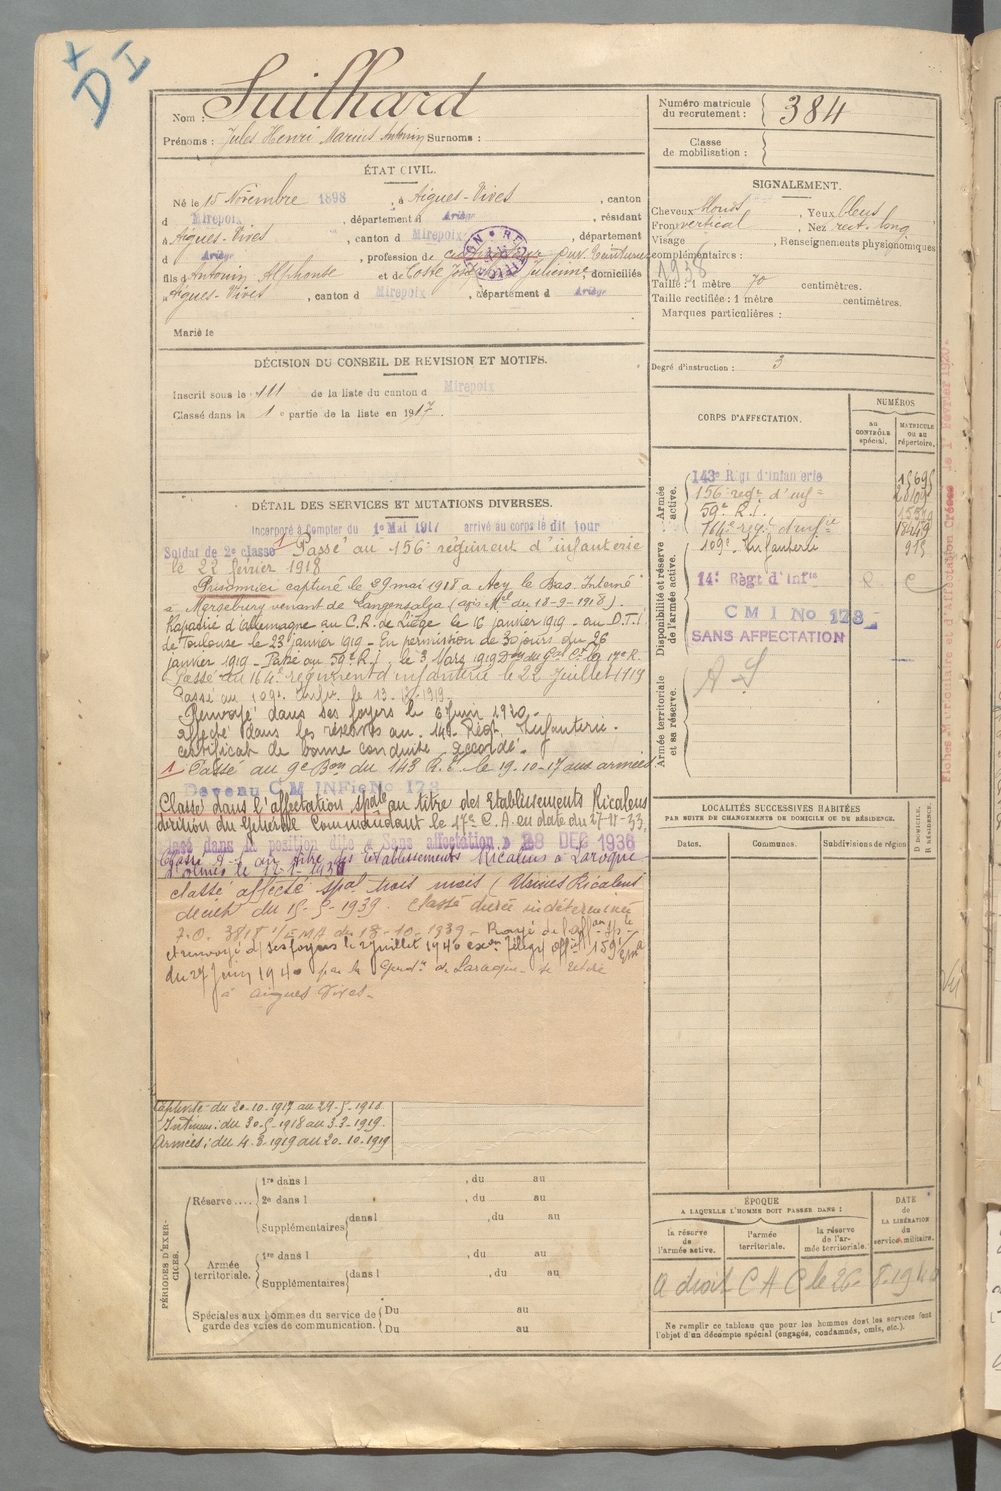 DI
Nom : Suilhard
Prénoms : Jules Henri Marius Antonin Surnoms :
Numéro matricule du recrutement : 384
Classe de mobilisation :
ÉTAT CIVIL.
Né le 15 Novembre 1898, à Aigues-Vives, canton
d Mirepoix, département d Ariège, résidant
à Aigues-Vives, canton d Mirepoix, département
d Ariège, profession de cultivateur
fils d Antonin Alphonse et de Coste Julienne domiciliés
à Aigues-Vives, canton d Mirepoix, département d Ariège
Marié le
SIGNALEMENT.
Cheveux, Yeux bleus
Front vertical, Nez rect. long
Visage, Renseignements physionomiques
complémentaires :
1938
Taille : 1 mètre 70 centimètres.
Taille rectifiée : 1 mètre centimètres.
Marques particulières :
Degré d'instruction : 3
DÉCISION DU CONSEIL DE REVISION ET MOTIFS.
Inscrit sous le n° 111 de la liste du canton d Mirepoix
Classé dans la 1e partie de la liste en 1917.
DÉTAIL DES SERVICES ET MUTATIONS DIVERSES.
Incorporé à compter du 1er Mai 1917 arrivé au corps le dit jour
Soldat de 2e classe 1 Passé au 156e régiment d'infanterie
le 22 février 1918
Prisonnier capturé le 29 mai 1918 à Acy le Bas. Interné
à Mersebury venant de Langensalza (avis Mel du 18-9-1918).
Rapatrié d'Allemagne au C.R. de Liège le 16 janvier 1919 - au D.T.I.
de Toulouse le 23 janvier 1919 - En permission de 30 jours du 26
janvier 1919 - Passé au 59e R.I. le 3 Mars 1919 Don du Gal Ct la 17e R.
Passé au 164e régiment d'infanterie le 22 Juillet 1919
Passé au 109e Infie le 13. 1919.
Renvoyé dans ses foyers le 6 Juin 1920.
Affecté dans les réserves au 14e Régt Infanterie.
certificat de bonne conduite accordé.
1 Passé au 9e Bon du 143 R.I. le 19.10-17 aux armées
Devenu C M INFie No 178
Classé dans l'affectation spale au titre des Etablissements Ricalens
décision du Général Commandant le 17e C.A. en date du 27-11-33.
Placé dans la position dite « Sans affectation » 28 DEC 1936
Passé A-S au titre des Etablissements Ricalens à Laroque
d'olmes le 1938
classé affecté spal trois mois (Usines Ricalens
décision du 15-5-1939. Classé durée indéterminée
J.O. 3818 1/EMA du 18-10-1939 - Rayé de l'affon sple
et renvoyé d/ ses foyers le 2 Juillet 1940
du 27 Juin 1940 par la Gendie de Laroque - se retire
à Aigues Vives -
Captivité du 20-10-1917 au 29-5-1918
Intérieur : du 30-5-1918 au 3-3-1919.
Armées : du 4-3-1919 au 20-10-1919
CORPS D'AFFECTATION.
NUMÉROS
au CONTRÔLE spécial.
MATRICULE OU AU répertoire.
Armée active.
143e Régt d'Infanterie
156e régt d'infie
59e R.I.
164e régt d'infie
109e Infanterie
Disponibilité et réserve de l'armée active.
14e Régt d'Infie
C M I No 178
SANS AFFECTATION
Armée territoriale et sa réserve.
A-S
LOCALITÉS SUCCESSIVES HABITÉES
PAR SUITE DE CHANGEMENTS DE DOMICILE OU DE RÉSIDENCE.
Dates. Communes. Subdivisions de région
D DOMICILE. R RÉSIDENCE.
PÉRIODES D'EXERCICES.
Réserve.... 1re dans l, du au
2e dans l, du au
Supplémentaires dans l, du au
Armée territoriale. 1re dans l, du au
Supplémentaires dans l, du au
Spéciales aux hommes du service de garde des voies de communication. Du au
Du au
ÉPOQUE
A LAQUELLE L'HOMME DOIT PASSER DANS :
la réserve de l'armée active.
l'armée territoriale.
la réserve de l'armée territoriale.
DATE de LA LIBÉRATION du service militaire.
a droit C A C le 26-8-1940
Ne remplir ce tableau que pour les hommes dont les services font
l'objet d'un décompte spécial (engagés, condamnés, omis, etc.).